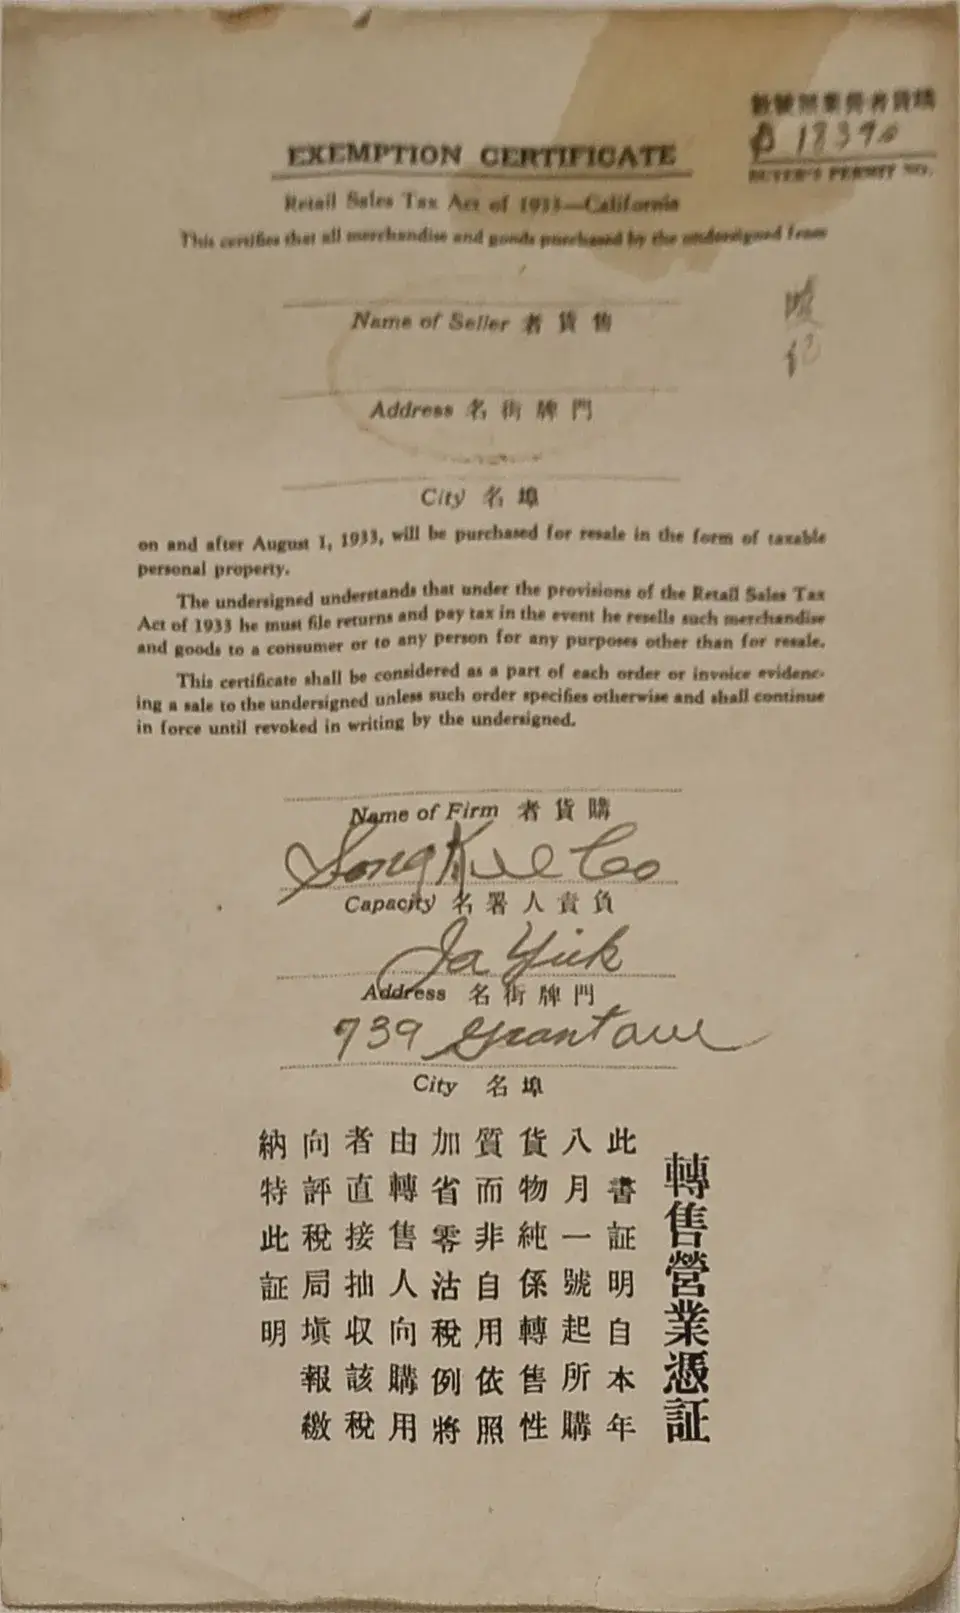 購貨者營業照號數
B 18390
BUYER'S PERMIT NO.
EXEMPTION CERTIFICATE
Retail Sales Tax Act of 1933—California
This certifies that all merchandise and goods purchased by the undersigned from
記
Name of Seller 者貨售
Address 名街牌門
City 名埠
on and after August 1, 1933, will be purchased for resale in the form of taxable
personal property.
The undersigned understands that under the provisions of the Retail Sales Tax
Act of 1933 he must file returns and pay tax in the event he resells such merchandise
and goods to a consumer or to any person for any purposes other than for resale.
This certificate shall be considered as a part of each order or invoice evidenc-
ing a sale to the undersigned unless such order specifies otherwise and shall continue
in force until revoked in writing by the undersigned.
Name of Firm 者貨購
Song Kee Co
Capacity 名署人責負
Ja Yick
Address 名街牌門
739 Grant ave
City 名埠
轉售營業憑証
此書証明自本年
八月一號起所購
貨物純係轉售性
質而非自用依照
加省零沽稅例將
由轉售人向購用
者直接抽収該稅
向評稅局塡報繳
納特此証明